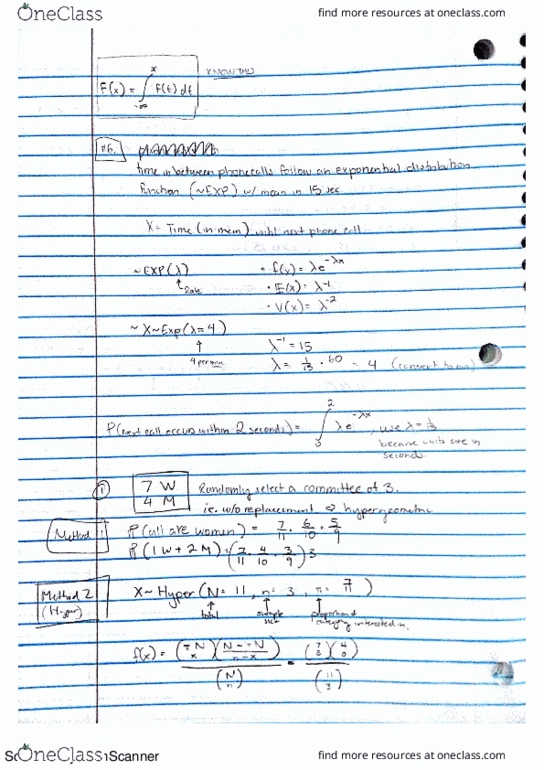 OneClass find more resources at oneclass.com
F(x) = ∫_{-∞}^{x} f(t) dt KNOW THIS
#6.
time in between phonecalls follow an exponential distribution
function (~EXP) w/ mean in 15 sec
X = Time (in mem) until next phone call
~EXP(λ) · f(x) = λe^{-λx}
↑ Rate · E(x) = λ^{-1}
· V(x) = λ^{-2}
~ X~Exp(λ=4) λ^{-1} = 15
↑ 4 per min λ = 1/15 · 60 = 4 (convert to min)
P(next call occurs within 2 seconds) = ∫_{0}^{2} λe^{-λx}, use λ = 1/15
because units are in
seconds.
① 7 W Randomly select a committee of 3.
4 M ie. w/o replacement ⇒ hypergeometric
Method 1 P(all are women) = 7/11 · 6/10 · 5/9
P(1W + 2M) = (7/11 · 4/10 · 3/9)3
Method 2 (Hyper) X ~ Hyper(N = 11, n = 3, π = 7/11)
↑ total ↑ sample size ↑ proportion of
category interested in.
f(x) = (πN x)(N-πN n-x) / (N n) = (7 3)(4 0) / (11 3)
OneClass Scanner find more resources at oneclass.com